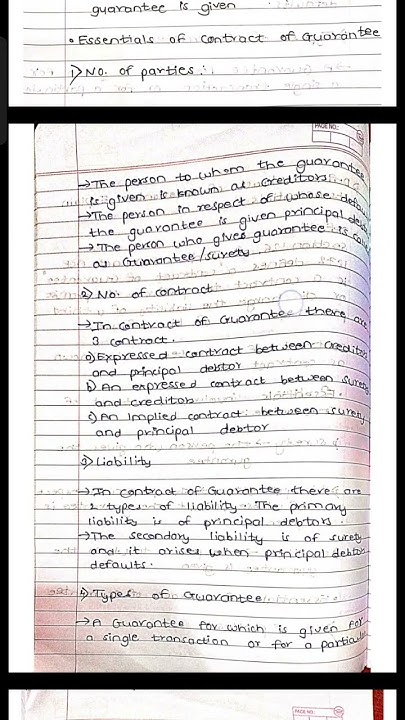 guarantee is given
• Essentials of contract of Guarantee
1) No. of parties :
PAGE NO.:
→ The person to whom the guarantee
is given is known as Creditors.
→ The person in respect of whose
the guarantee is given principal
→ The person who gives guarantee is
as Guarantee/surety
2) No. of contract
→ In contract of Guarantee there are
3 contract.
a) Expressed contract between
and principal debtor
b) An expressed contract between surety
and creditor
c) An Implied contract between surety
and principal debtor
3) Liability
→ In contract of Guarantee there are
2 types of liability. The primary
liability is of principal debtors.
→ The secondary liability is of surety
and it arises when principal
defaults.
Types of Guarantee
→ A Guarantee for which is given for
a single transaction or for a
PAGE NO.: